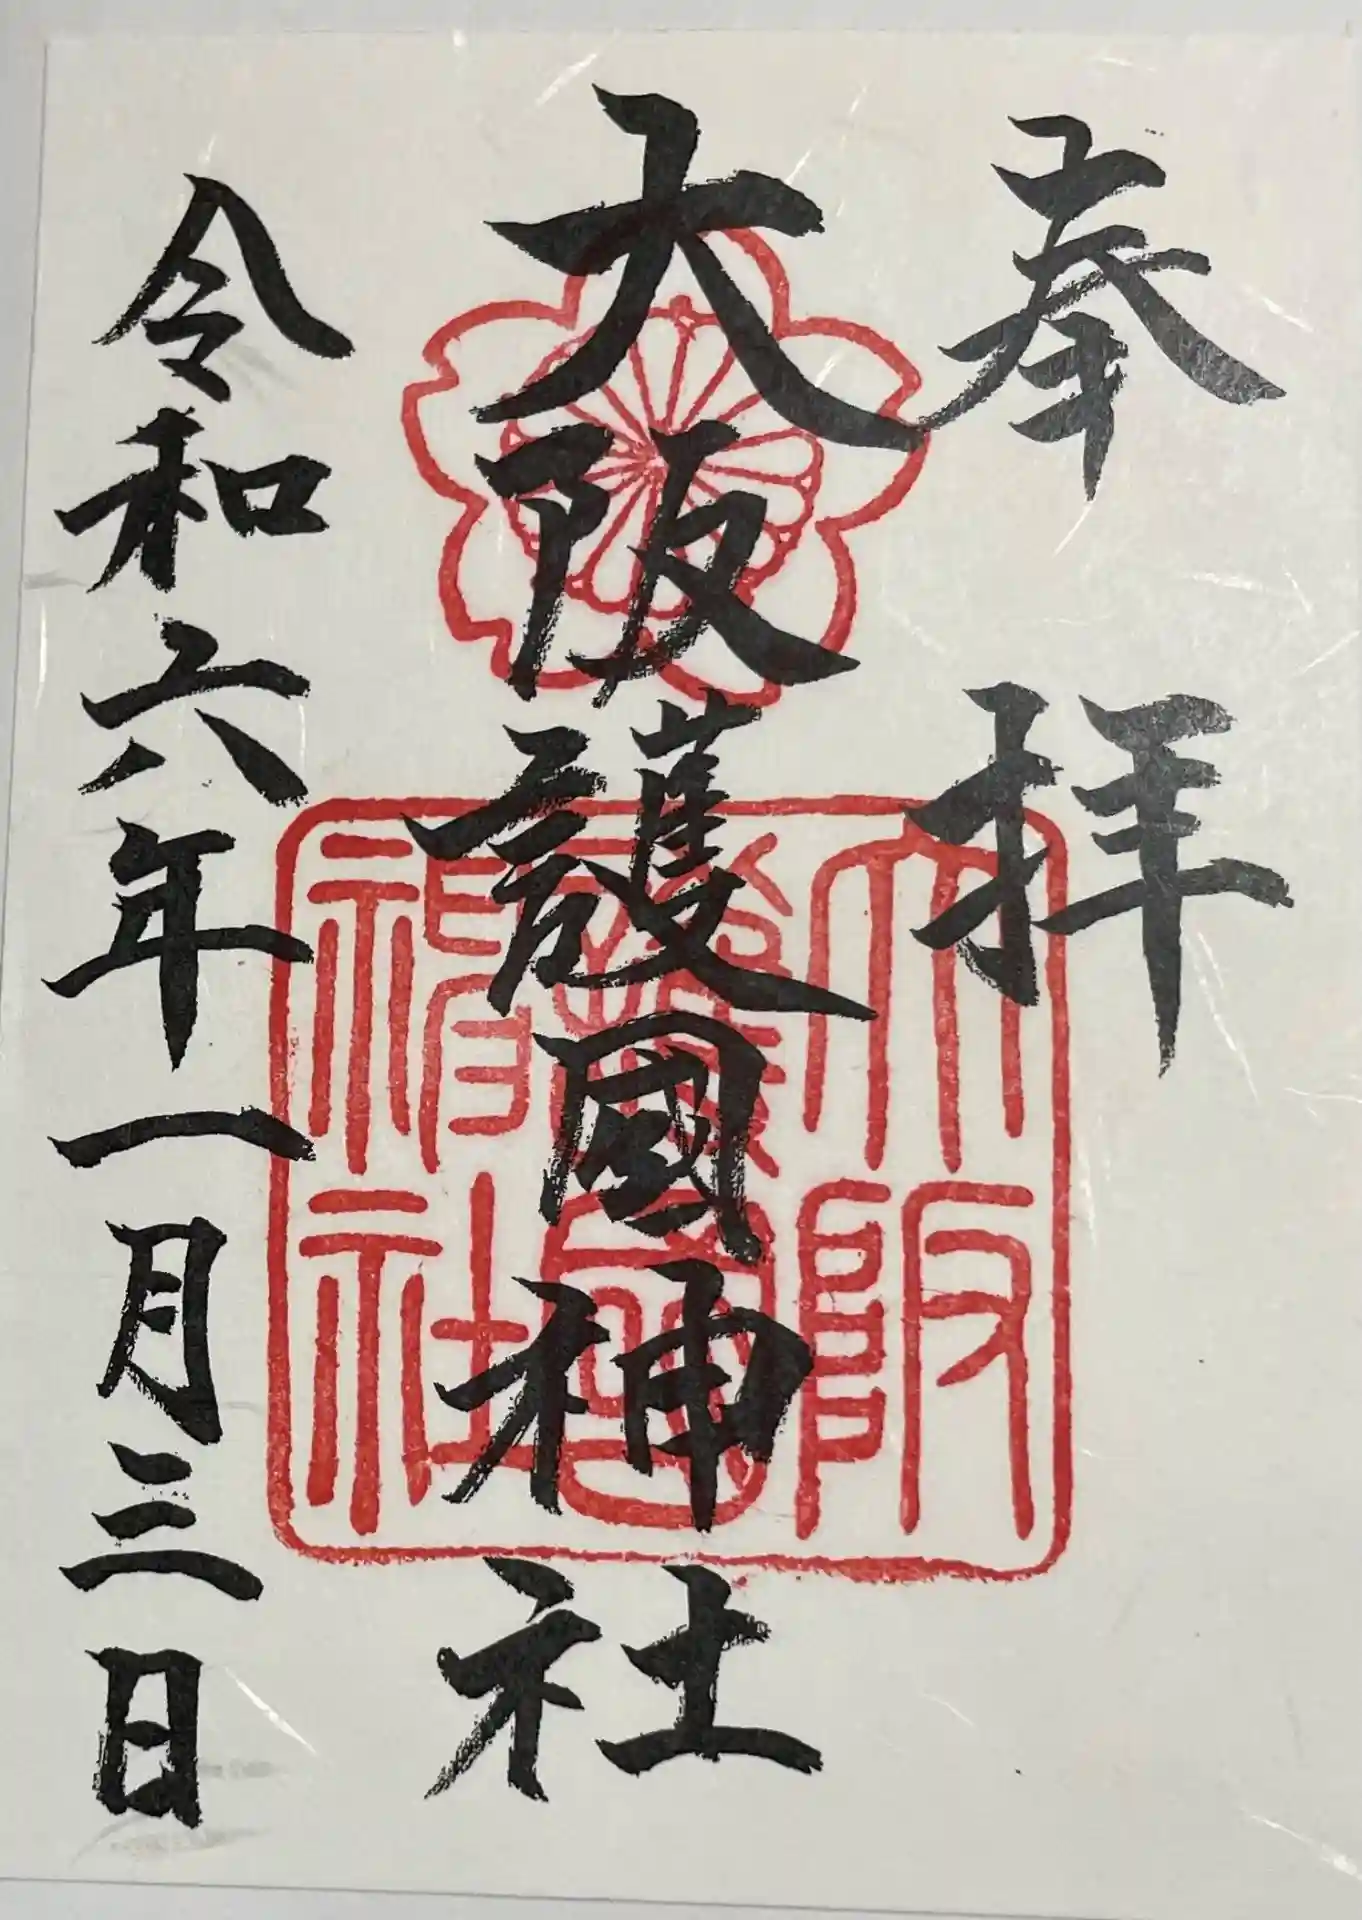 奉拝
大阪護國神社
令和六年一月三日
大阪
護國
神社